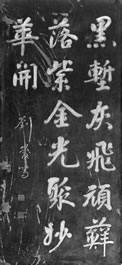 黑塹灰飛頑蘚
落紫金光聚妙
華開